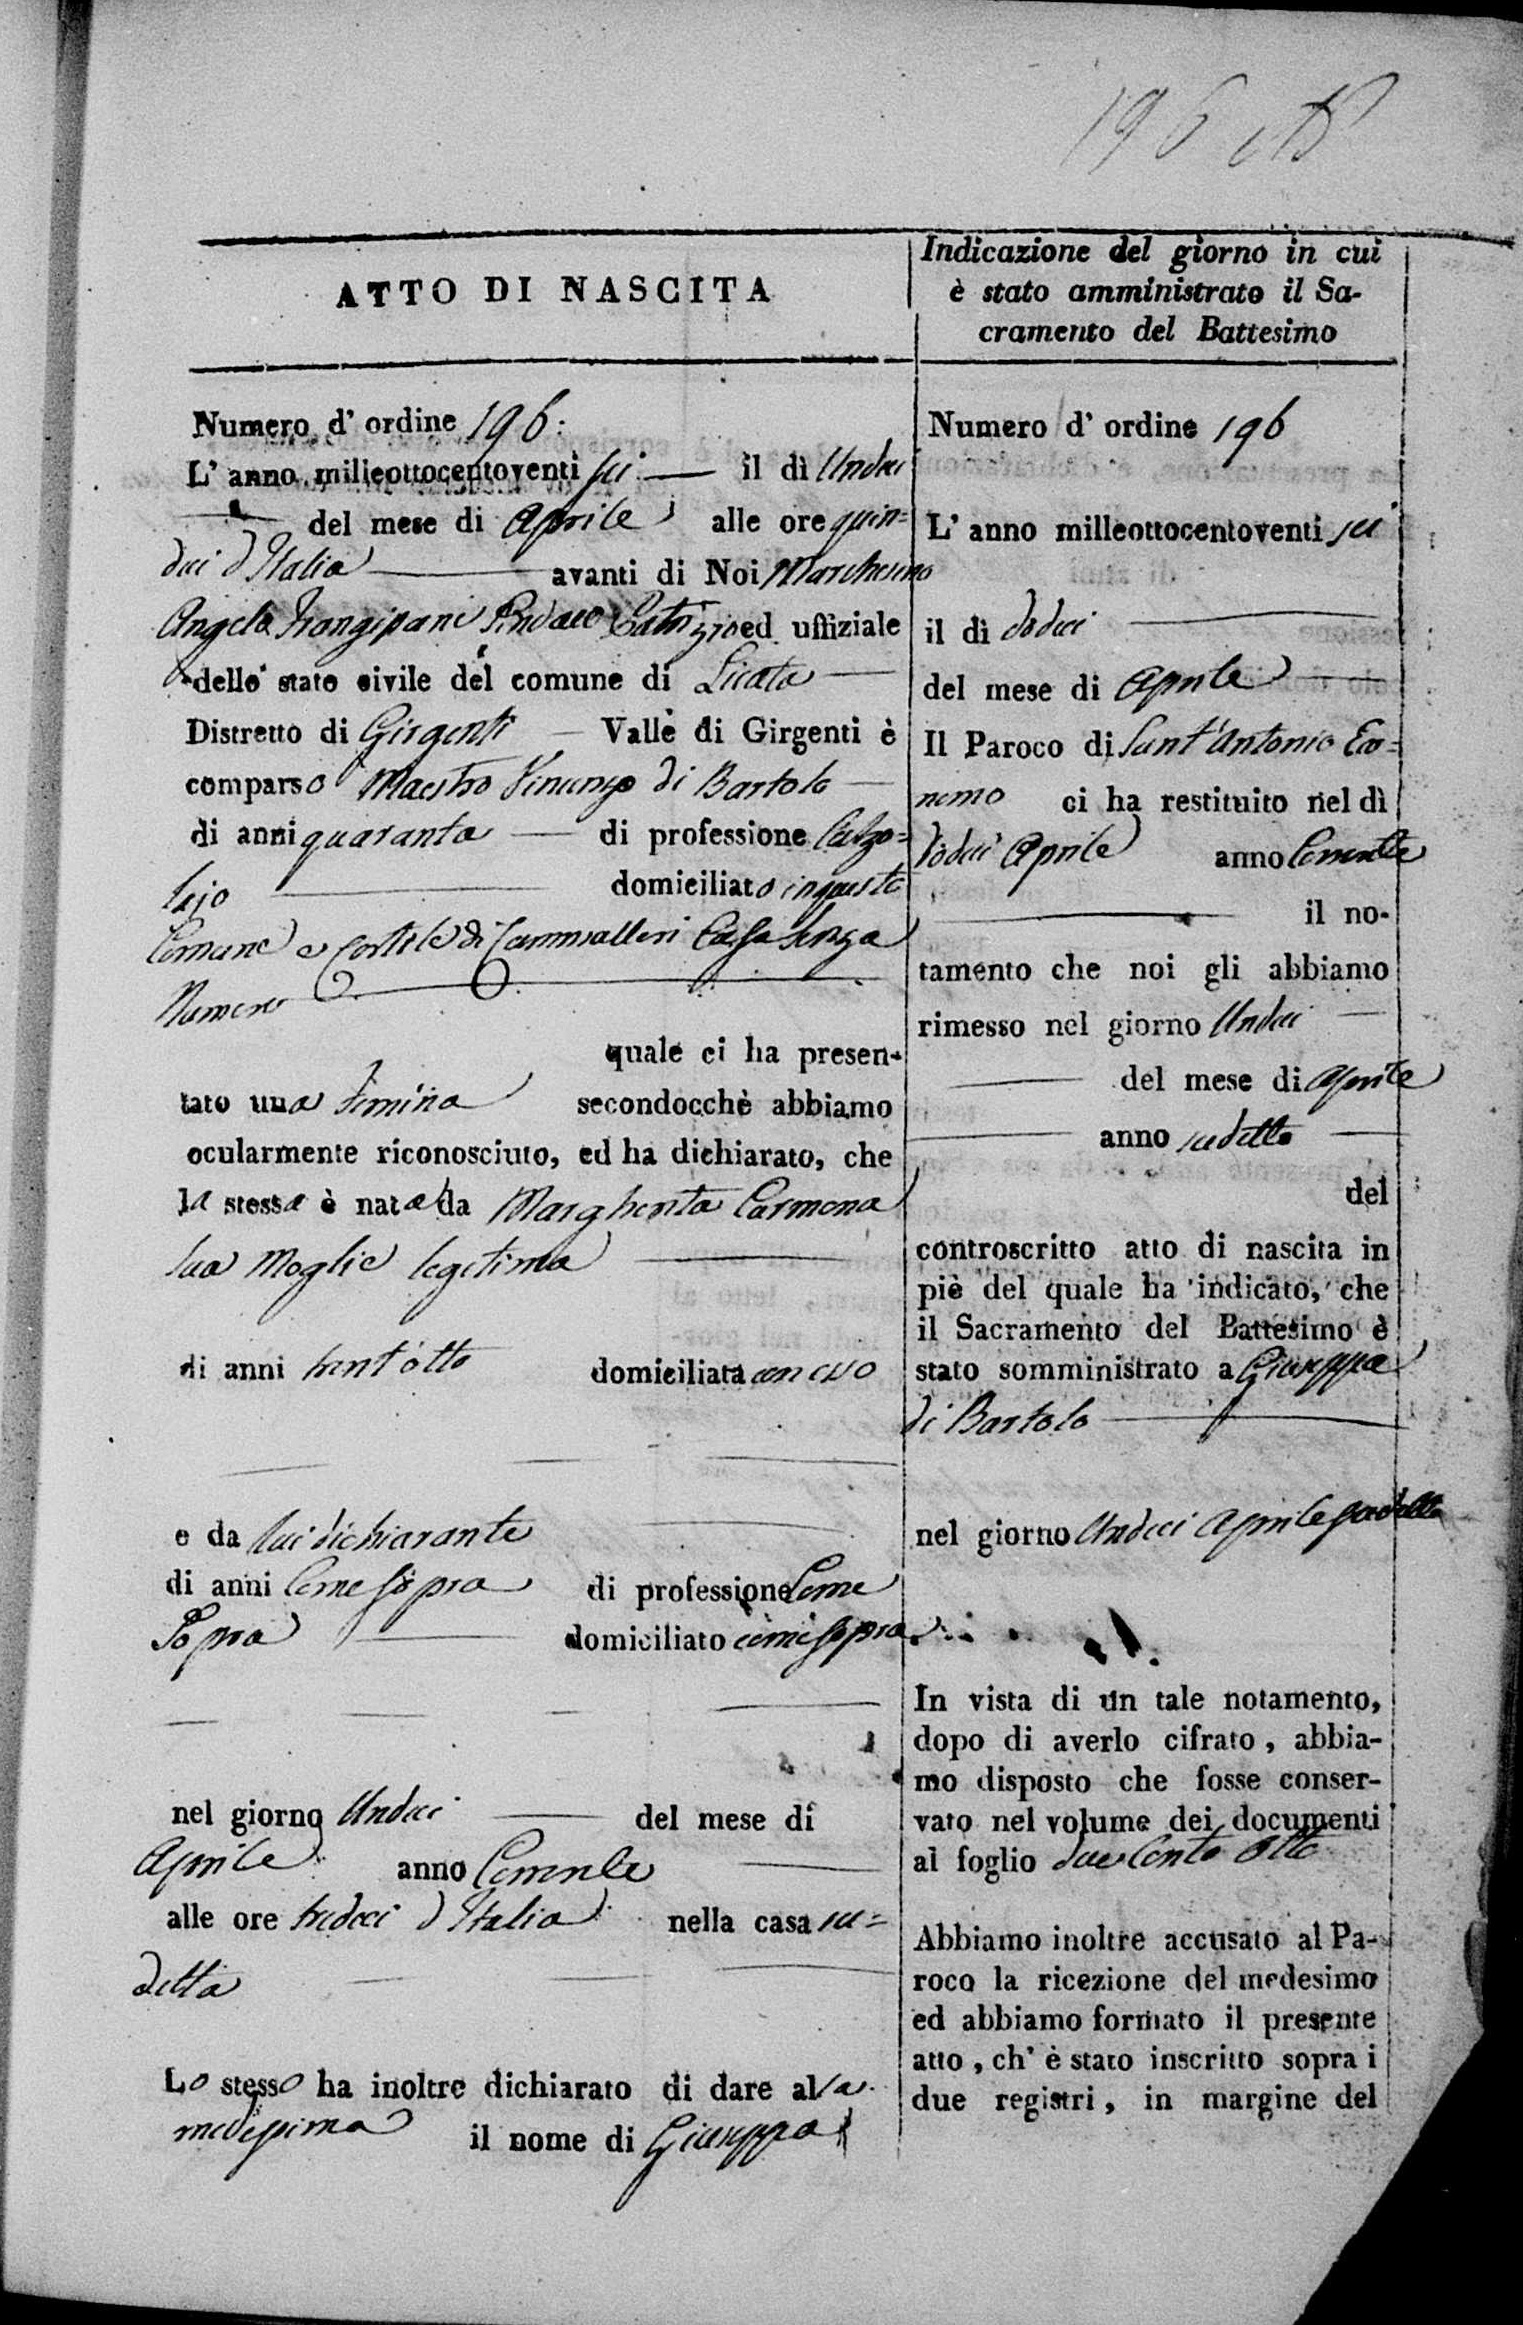 196
ATTO DI NASCITA
Numero d' ordine 196:
L' anno milleottocentoventi sei il dì Undeci
del mese di Aprile alle ore quin=
dici d'Italia avanti di Noi Marchesino
Angelo Frangipani Sindaco Patrizio ed uffiziale
dello stato civile del comune di Licata
Distretto di Girgenti Valle di Girgenti è
comparso Maestro Vincenzo di Bartolo
di anni quaranta di professione Calzo=
lajo domiciliato in questo
Comune e Cortile di Cammalleri Casa senza
Numero
quale ci ha presen-
tato una Femina secondocchè abbiamo
ocularmente riconosciuto, ed ha dichiarato, che
la stessa è nata da Margherita Carmona
sua Moglie legitima
di anni trent'otto domiciliata con esso
e da lui dichiarante
di anni Come sopra di professione Come
Sopra domiciliato come sopra
nel giorno Undeci del mese di
Aprile anno Corrente
alle ore tredeci d'Italia nella casa su=
detta
Lo stesso ha inoltre dichiarato di dare alla
medesima il nome di Giuseppa
Indicazione del giorno in cui
è stato amministrato il Sa-
cramento del Battesimo
Numero d' ordine 196
L' anno milleottocentoventi sei
il dì dodeci
del mese di Aprile
Il Paroco di Sant'Antonio Eco=
nomo ci ha restituito nel dì
dodeci Aprile anno Corrente
il no-
tamento che noi gli abbiamo
rimesso nel giorno Undeci
del mese di Aprile
anno sudetto
del
controscritto atto di nascita in
piè del quale ha indicato, che
il Sacramento del Battesimo è
stato somministrato a Giuseppa
di Bartolo
nel giorno Undeci Aprile sudetto
In vista di un tale notamento,
dopo di averlo cifrato, abbia-
mo disposto che fosse conser-
vato nel volume dei documenti
al foglio due Cento Otto
Abbiamo inoltre accusato al Pa-
roco la ricezione del medesimo
ed abbiamo formato il presente
atto, ch' è stato inscritto sopra i
due registri, in margine del